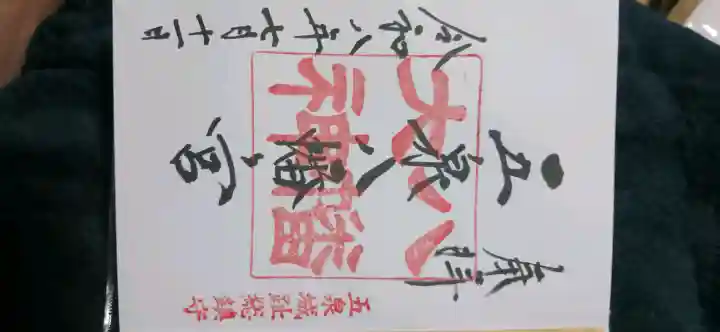 奉拝
五泉八幡宮
八幡大神
令和八年七月十一日
五泉城址総鎮守